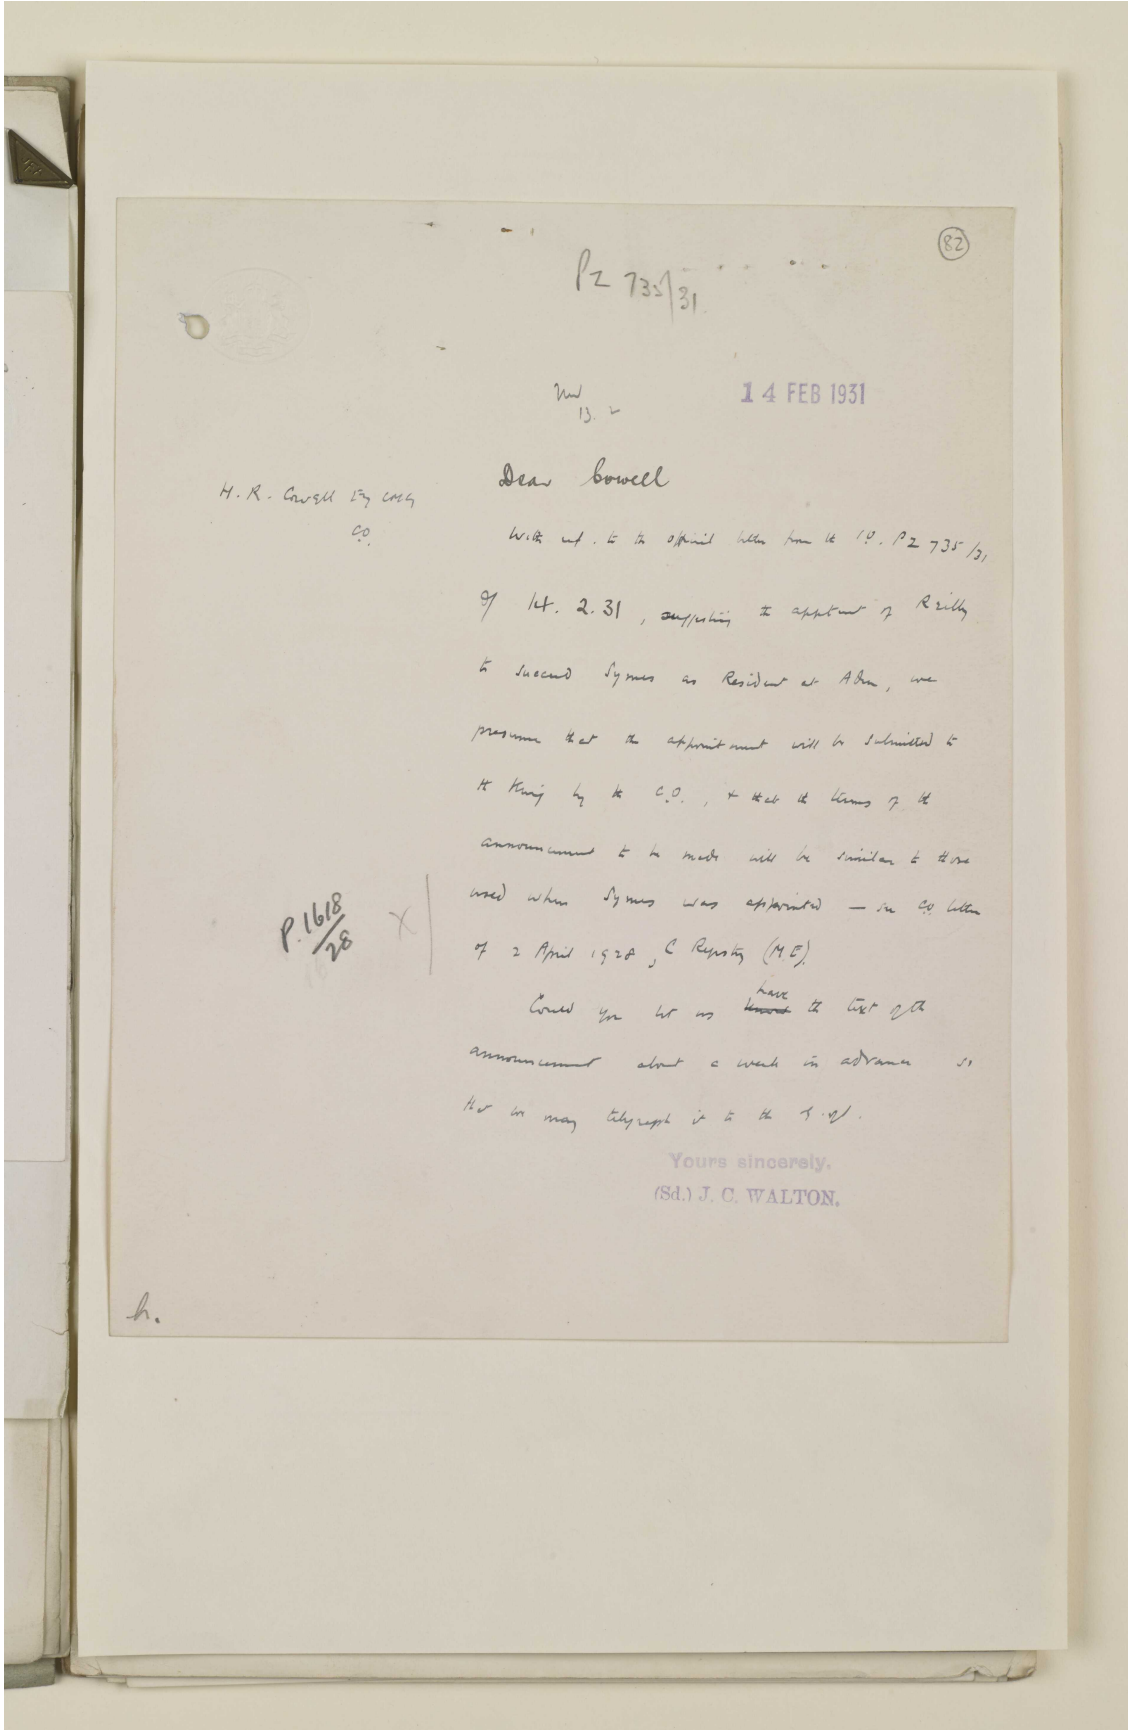 82
PZ 735/31
13. 2
14 FEB 1931
Dear Cowell
H. R. Cowell Esq CMG
C.O.
With ref. to the official letter from the I.O. PZ 735/31
of 14. 2. 31, suggesting the apptment of Reilly
to succeed Symes as Resident at Aden, we
presume that the appointment will be submitted to
the King by the C.O., & that the terms of the
announcement to be made will be similar to those
used when Symes was appointed — see C.O. letter
P.1618/28 X
of 2 April 1928, C Registry (M.E).
Could you let us know have the text of the
announcement about a week in advance so
that we may telegraph it to the G. of I.
Yours sincerely,
(Sd.) J. C. WALTON.
h.